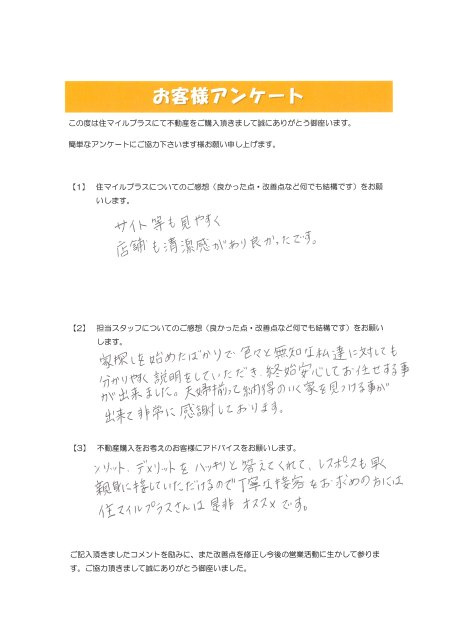 お客様アンケート
この度は住マイルプラスにて不動産をご購入頂きまして誠にありがとう御座います。
簡単なアンケートにご協力下さいます様お願い申し上げます。
【1】 住マイルプラスについてのご感想（良かった点・改善点など何でも結構です）をお願
いします。
サイト等も見やすく
店舗も清潔感があり良かったです。
【2】 担当スタッフについてのご感想（良かった点・改善点など何でも結構です）をお願い
します。
家探しを始めたばかりで色々と無知な私達に対しても
分かりやすく説明をしていただき、終始安心してお任せする事
が出来ました。夫婦揃って納得のいく家を見つける事が
出来て非常に感謝しております。
【3】 不動産購入をお考えのお客様にアドバイスをお願いします。
メリット、デメリットをハッキリと答えてくれて、レスポンスも早く
親身に接していただけるので丁寧な接客をお求めの方には
住マイルプラスさんは是非オススメです。
ご記入頂きましたコメントを励みに、また改善点を修正し今後の営業活動に生かして参りま
す。ご協力頂きまして誠にありがとう御座いました。